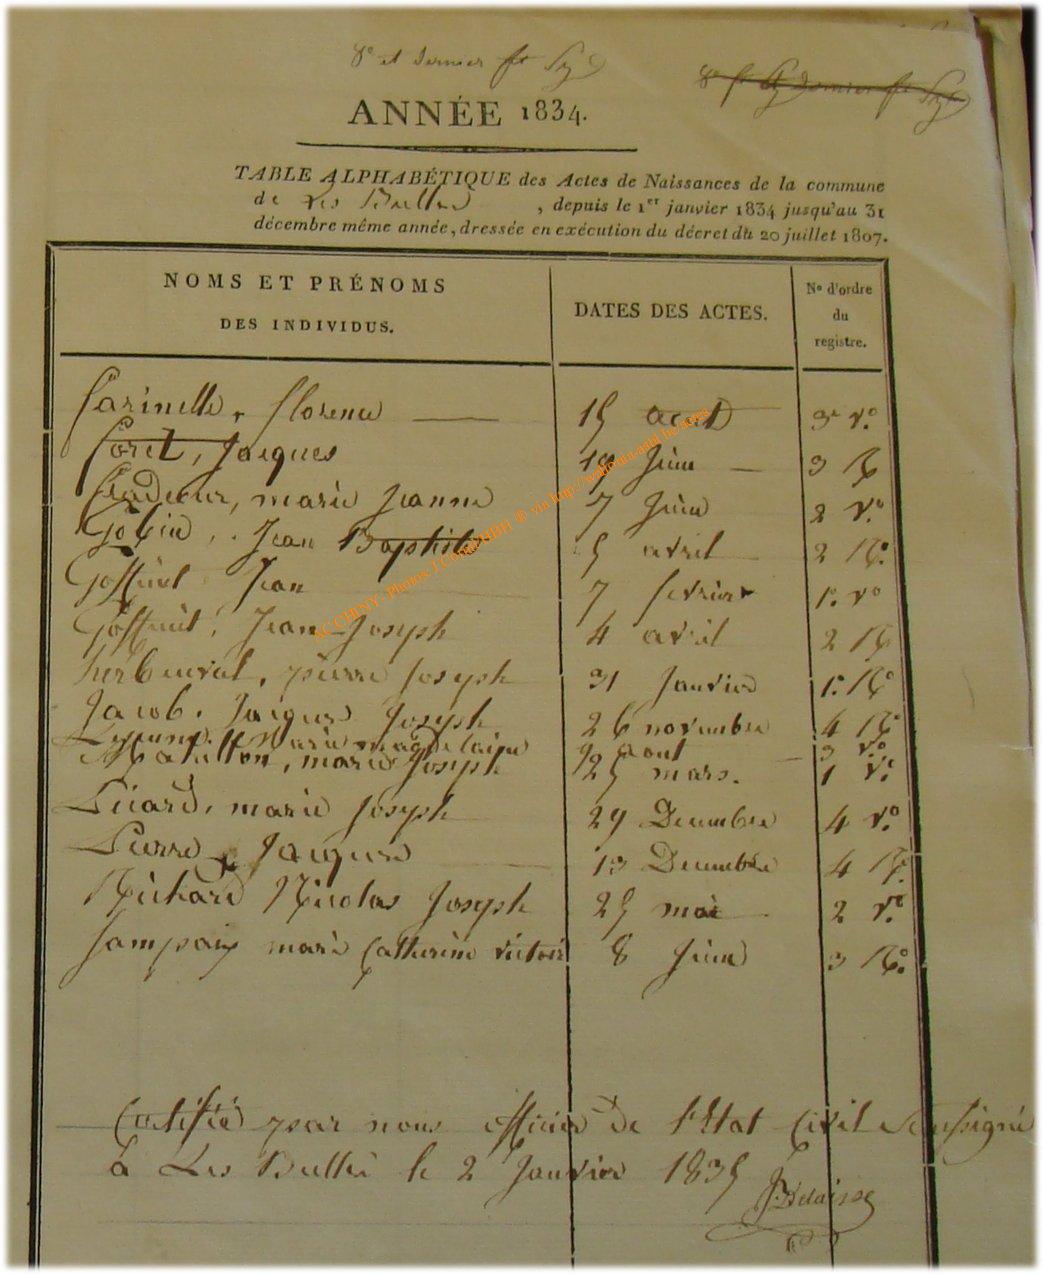 8e et dernier ft
8e ft et dernier ft
ANNÉE 1834.
TABLE ALPHABÉTIQUE des Actes de Naissances de la commune
de Les Bulles, depuis le 1er janvier 1834 jusqu'au 31
décembre même année, dressée en exécution du décret du 20 juillet 1807.
NOMS ET PRÉNOMS DES INDIVIDUS. DATES DES ACTES. No d'ordre du registre.
Farinelle, florence 15 aout 3e Vo
Foret, Jacques 19 Juin 3 Ro
marie Jeanne 7 Juin 2 Vo
Gobin, Jean Baptiste 5 avril 2 Ro
Goffinet Jean 7 fevrier 1o Vo
Goffinet, Jean Joseph 4 avril 2 Ro
herbeuval, pierre Joseph 31 Janvier 1o Ro
Jacob, Jacques Joseph 26 novembre 4 Ro
Lejeune, Marie magdelaine 9 aout 3 Vo
Matillon, marie Joseph 25 mars. 1 Vo
Picard, marie Joseph 29 Decembre 4 Vo
Pierre, Jacques 13 Decembre 4 Ro
Richard Nicolas Joseph 25 mai 2 Vo
Jampaix marie Catherine victoire 8 Juin 3 Ro
Certifié par nous officier de l'Etat Civil soussigné
à Les Bulles le 2 Janvier 1835